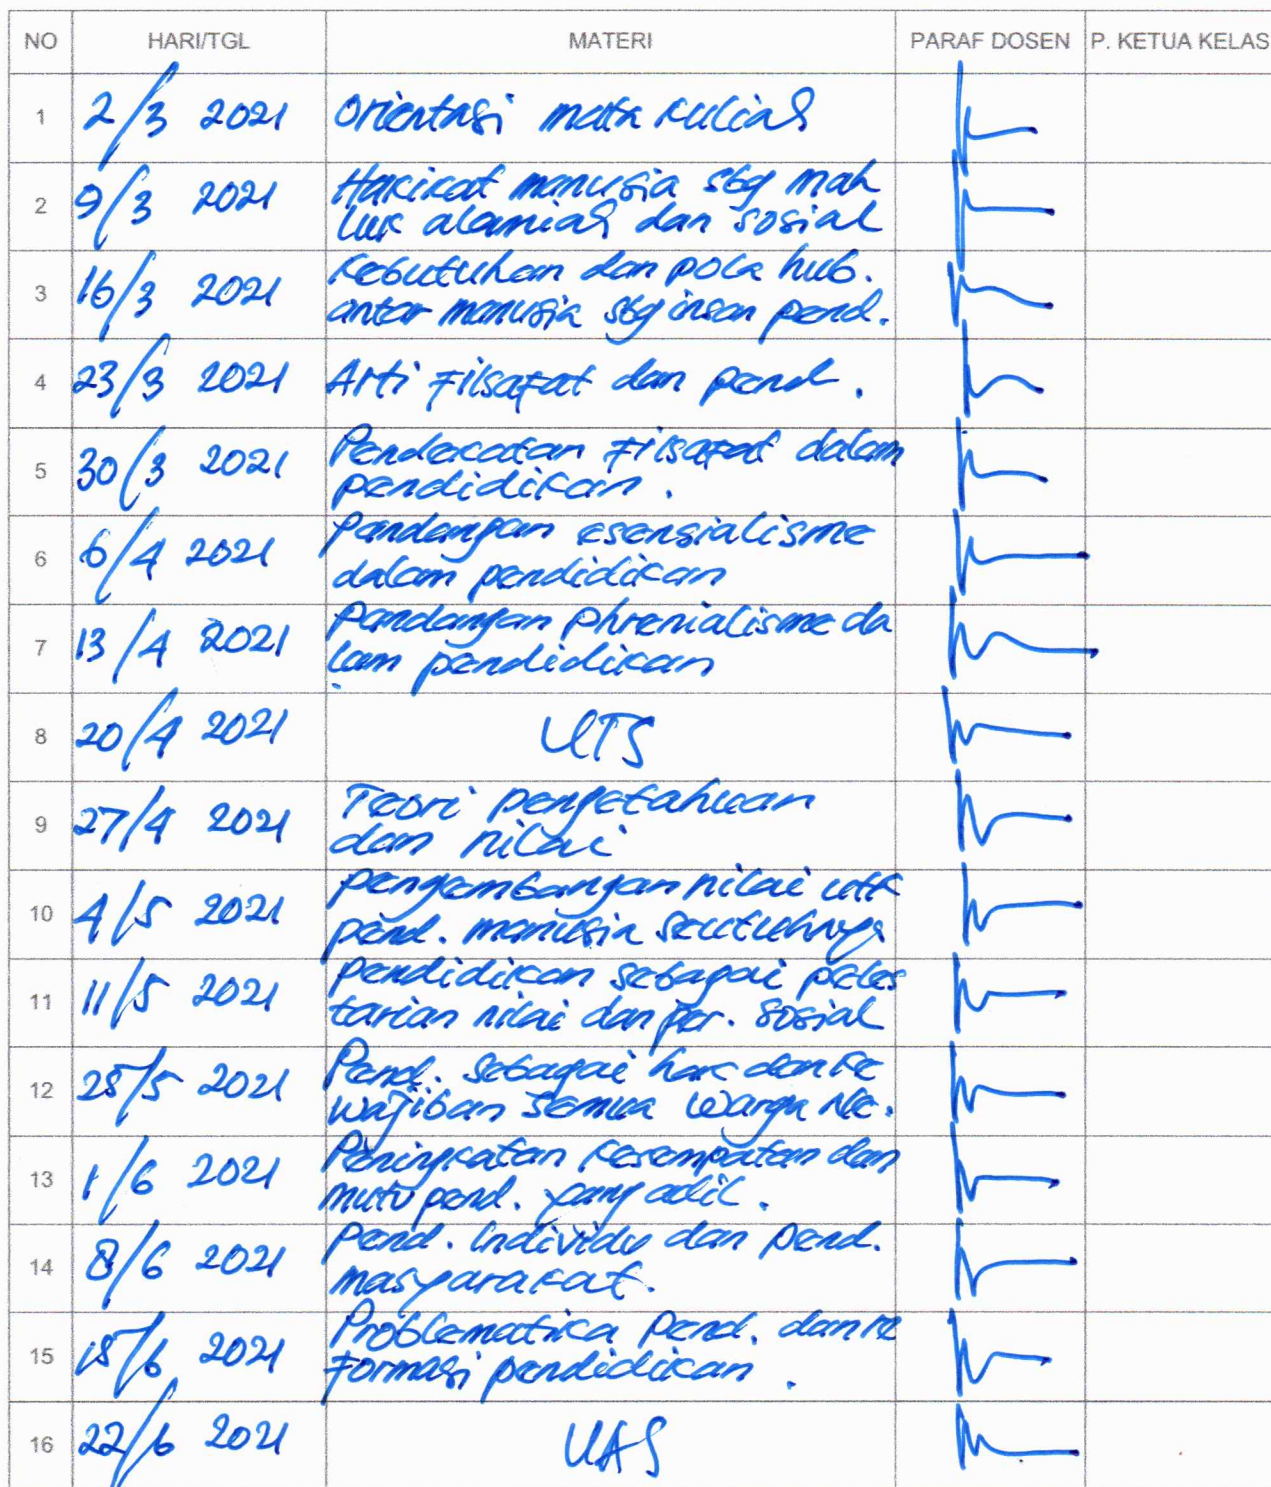 NO HARI/TGL MATERI PARAF DOSEN P. KETUA KELAS
1 2/3 2021 Orientasi mata kuliah
2 9/3 2021 Hakikat manusia sbg mah
luk alamiah dan sosial
3 16/3 2021 Kebutuhan dan pola hub.
antar manusia sbg insan pend.
4 23/3 2021 Arti Filsafat dan pend.
5 30/3 2021 Pendekatan Filsafat dalam
pendidikan.
6 6/4 2021 Pandangan esensialisme
dalam pendidikan
7 13/4 2021 Pandangan phrenialisme da
lam pendidikan
8 20/4 2021 UTS
9 27/4 2021 Teori pengetahuan
dan nilai
10 4/5 2021 pengembangan nilai utk
pend. manusia seutuhnya
11 11/5 2021 pendidikan sebagai peles
tarian nilai dan per. sosial
12 25/5 2021 Pend. sebagai hak dan ke
wajiban semua warga Ne.
13 1/6 2021 Peningkatan kesempatan dan
mutu pend. yang adil.
14 8/6 2021 Pend. individu dan pend.
masyarakat.
15 15/6 2021 Problematika Pend. dan re
formasi pendidikan.
16 22/6 2021 UAS